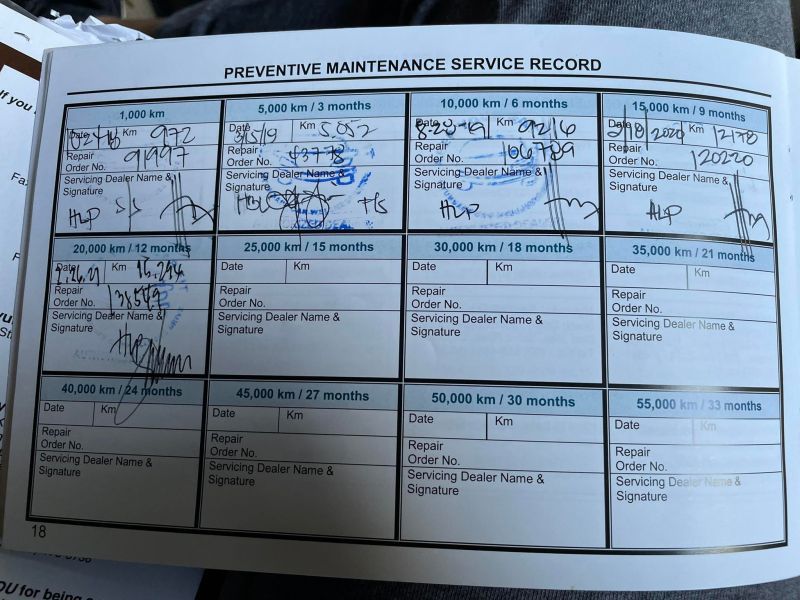 If you
Fa
PREVENTIVE MAINTENANCE SERVICE RECORD
1,000 km
Date Km 972
Repair
Order No. 91997
Servicing Dealer Name &
Signature
HLP
5,000 km / 3 months
Date 3/5/19 Km 5,052
Repair
Order No. 43778
Servicing Dealer Name &
Signature
10,000 km / 6 months
Date Km 9216
Repair
Order No. 106789
Servicing Dealer Name &
Signature
HLP
15,000 km / 9 months
Date Km 12178
Repair
Order No. 120220
Servicing Dealer Name &
Signature
HLP
20,000 km / 12 months
Date Km
Repair
Order No. 138543
Servicing Dealer Name &
Signature
HLP
25,000 km / 15 months
Date Km
Repair
Order No.
Servicing Dealer Name &
Signature
30,000 km / 18 months
Date Km
Repair
Order No.
Servicing Dealer Name &
Signature
35,000 km / 21 months
Date Km
Repair
Order No.
Servicing Dealer Name &
Signature
40,000 km / 24 months
Date Km
Repair
Order No.
Servicing Dealer Name &
Signature
45,000 km / 27 months
Date Km
Repair
Order No.
Servicing Dealer Name &
Signature
50,000 km / 30 months
Date Km
Repair
Order No.
Servicing Dealer Name &
Signature
55,000 km / 33 months
Date Km
Repair
Order No.
Servicing Dealer Name &
Signature
18
OU for being